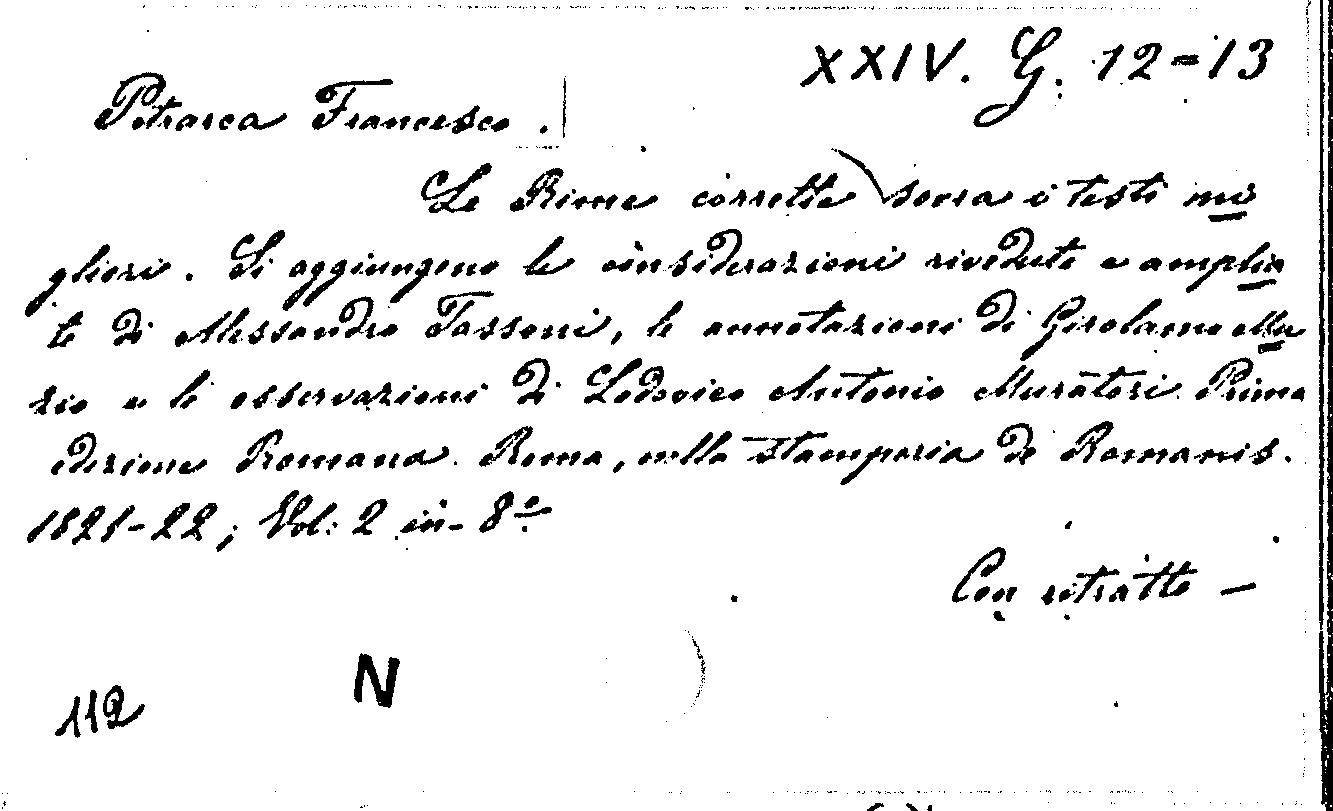 XXIV. G. 12=13
Petrarca Francesco.
Le Rime corrette sovra i testi mi
gliori. Si aggiungono le considerazioni rivedute e amplia
te di Alessandro Tassoni, le annotazioni di Girolamo Mu
zio e le osservazioni di Lodovico Antonio Muratori. Prima
edizione Romana. Roma, nella stamperia de Romanis.
1821-22; Vol: 2 in-8º
Con ritratto —
N
112